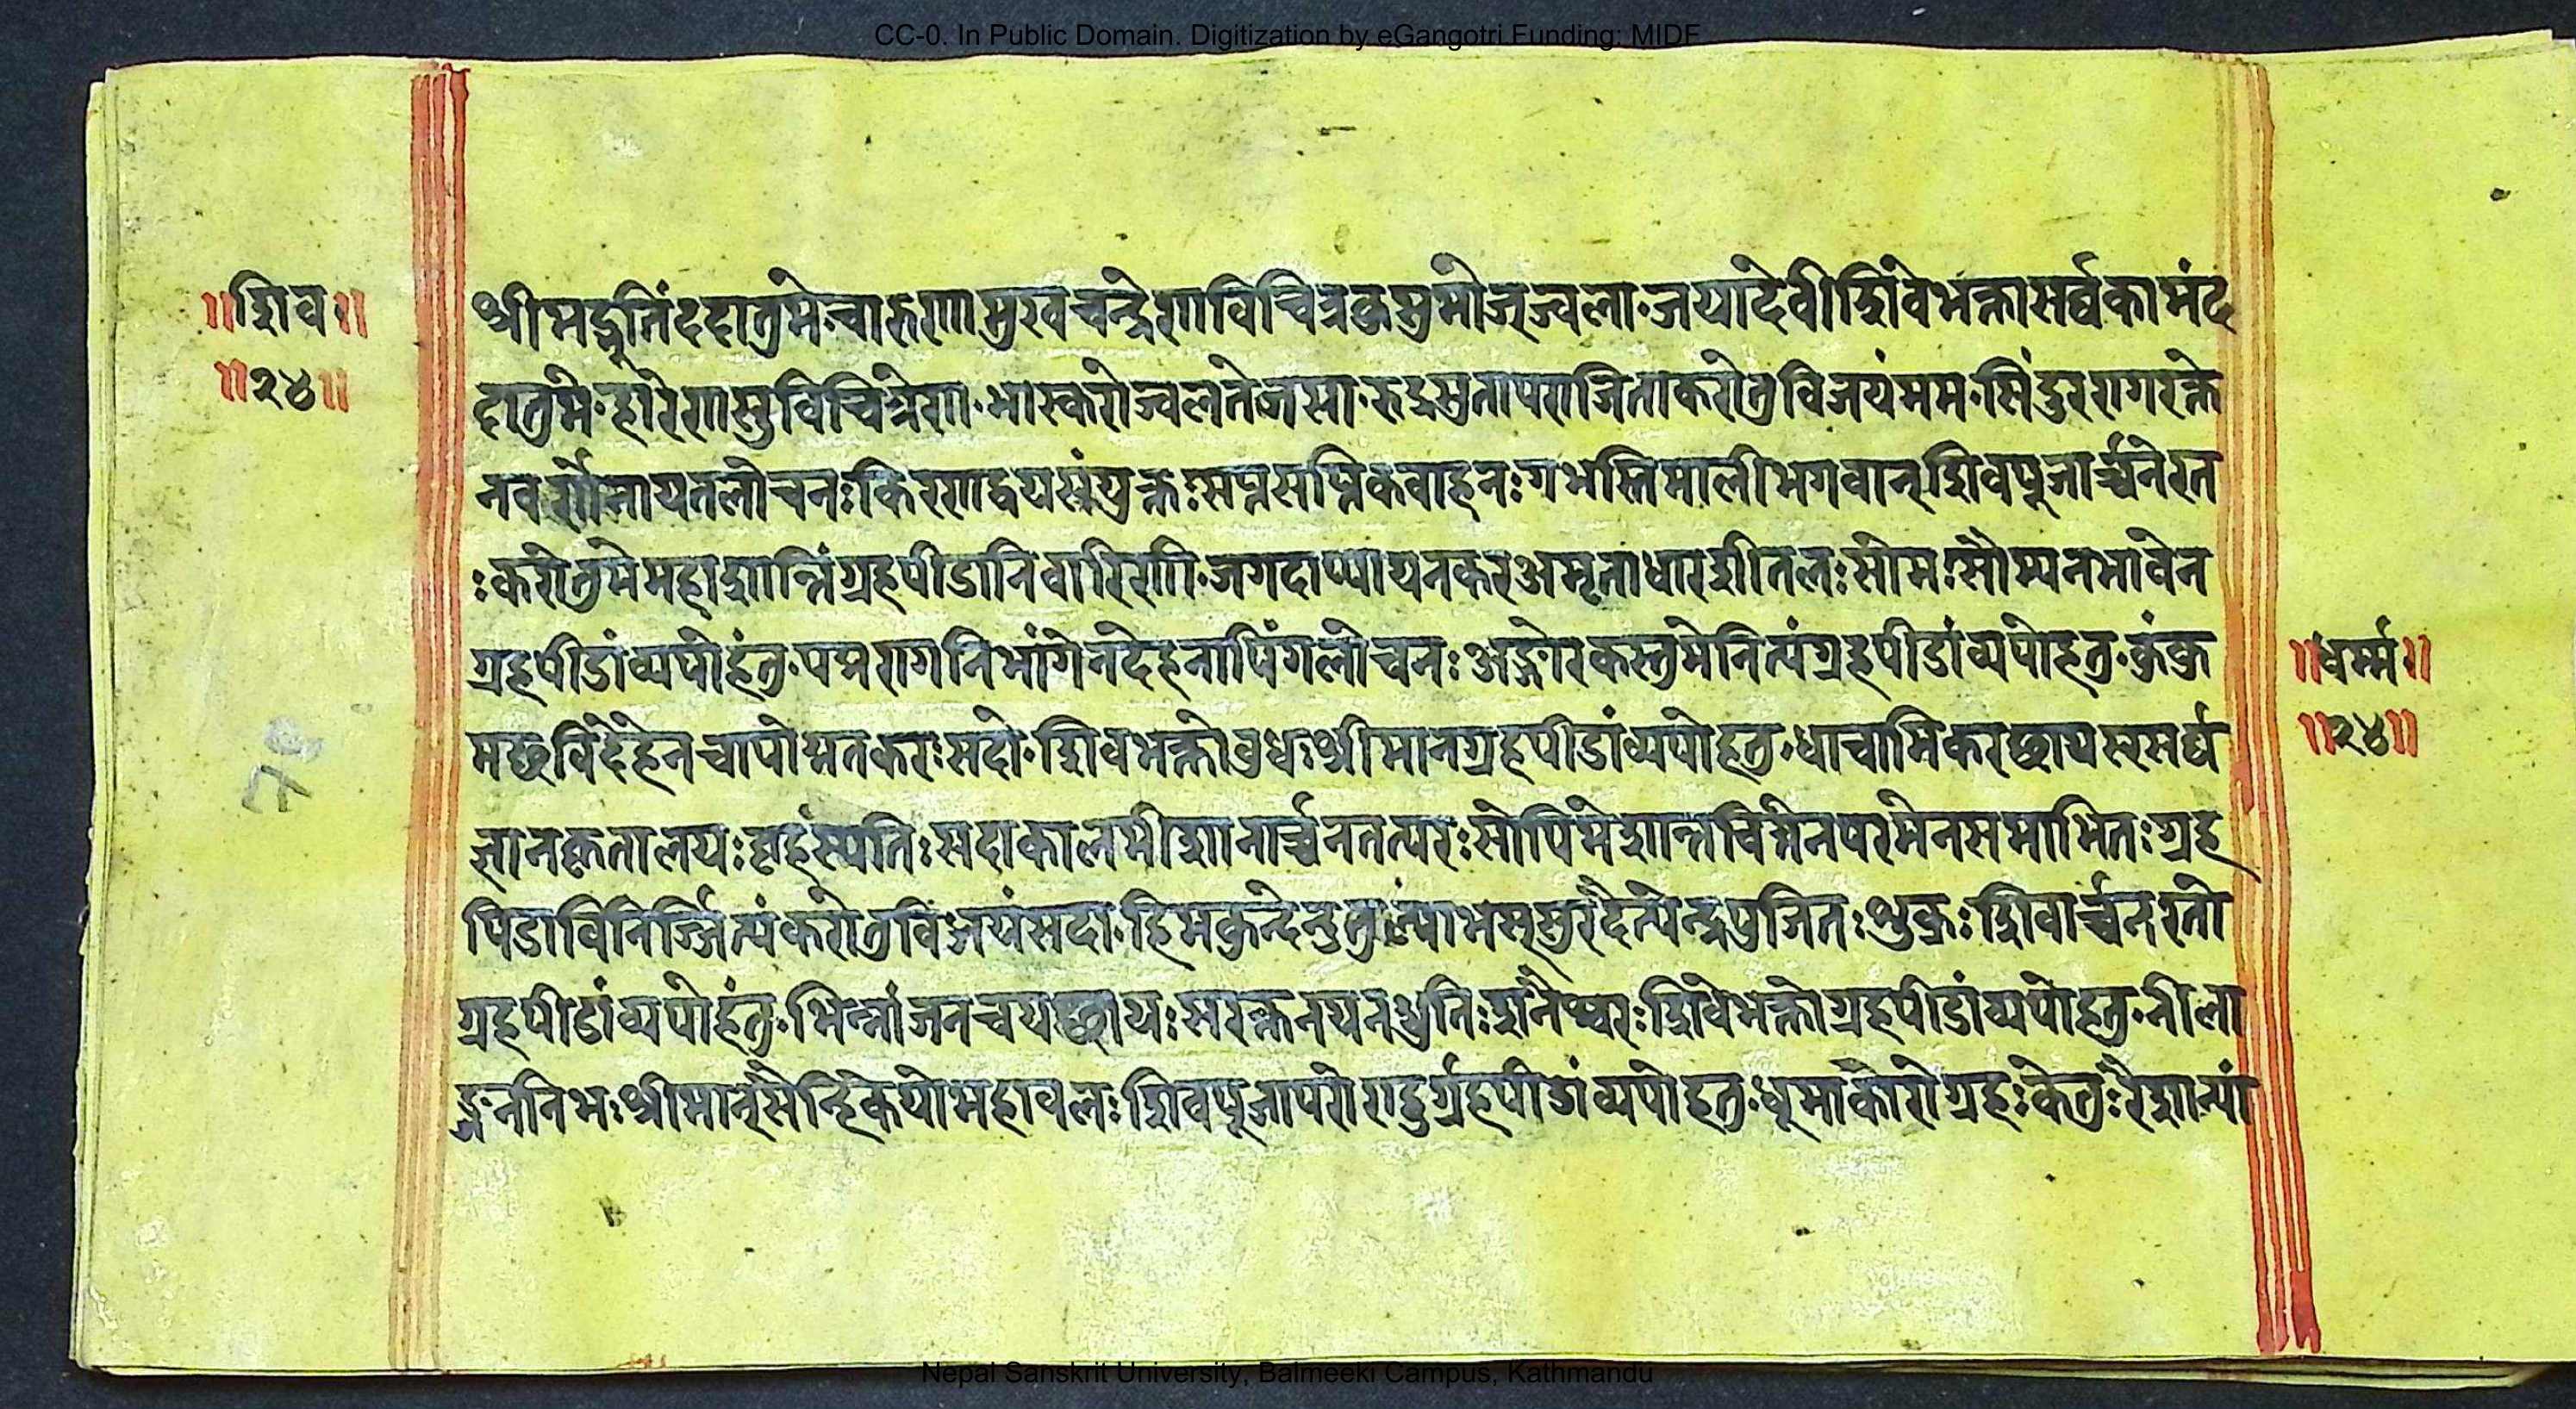 CC-0. In Public Domain. Digitization by eGangotri Funding: MIDF
॥शिव॥
॥२४॥
श्रीमद्गुतिंददातुमे॰चारुणामुखचन्द्रेणविचित्रकुसुमोज्ज्वला॰जयादेवीशिवेभक्तासर्व्वकामंद
दातुमे॰हारेणसुविचित्रेण॰भास्करोज्वलतेजसा॰रुद्रसुतापराजिताकरोतुविजयंमम॰सिंदुररागरक्ते
नवर्णोनायतलोचनःकिरणद्वयसंयुक्तःसप्तसप्तिकवाहनःगभस्तिमालीभगवान्शिवपूजार्च्चनेरत
ःकरोतुमेमहाशान्तिंग्रहपीडानिवारिणी॰जगदाप्यायनकरअमृताधारशीतलःसोमःसौम्यनभावेन
ग्रहपीडांव्यपोहंतु॰पद्मरागनिभांगेनदेहनापिंगलोचनःअङ्गारकस्तुमेनित्यंग्रहपीडांव्यपोहतु॰कुंकु
मछविंदेहेनचापोद्मतकरःसदो॰शिवभक्तोवुधःश्रीमानग्रहपीडांव्यपोहतु॰धाचामिकरछायस्सर्व्व
ज्ञानकृतालयःवृहंस्पतिःसदाकालमीशानार्च्चनतत्परःसोपिमेशान्तचित्तेनपरमेनसमाभितःग्रह
पिडाविनिर्ज्जित्यंकरोतुविजयंसदा॰हिमकुन्देन्दुतुल्याभसूसुरदैत्येन्द्रपुजितःशुक्रःशिवार्च्चनरतो
ग्रहपीडांव्यपोहंतु॰भिन्नांजनचयछायःसरक्तनयनध्रुतिःशनैश्चरःशिवेभक्तोग्रहपीडांव्यपोहतु॰नीला
ञ्जननिभःश्रीमान्सेन्हिकेयोमहावलःशिवपूजापरोराहुर्ग्रहपीडांव्यपोहतु॰धूमाकारोग्रहःकेतुःरैशान्यां
॥धर्म्म॥
॥२४॥
Nepal Sanskrit University, Balmeeki Campus, Kathmandu